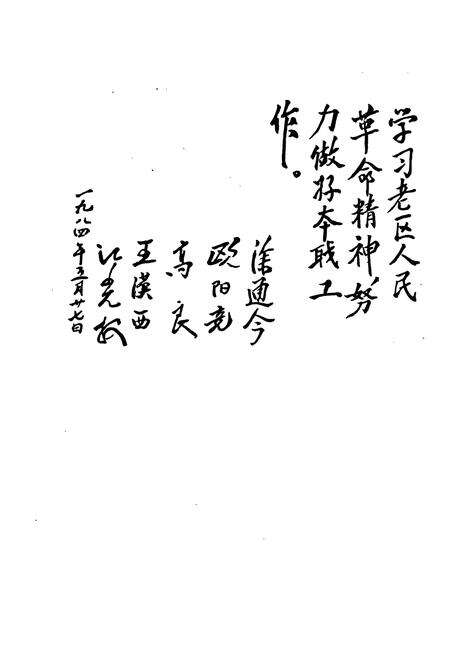 学习老区人民
革命精神，努
力做好本职工
作。
涂通今
欧阳竞
高良
王汉西
江光权
一九八四年五月廿七日